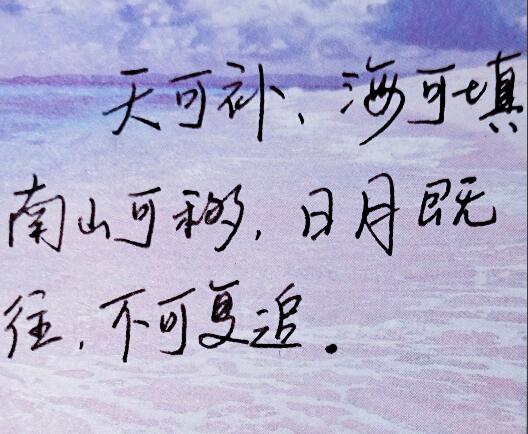 天可补、海可填
南山可移,日月既
往,不可复追。